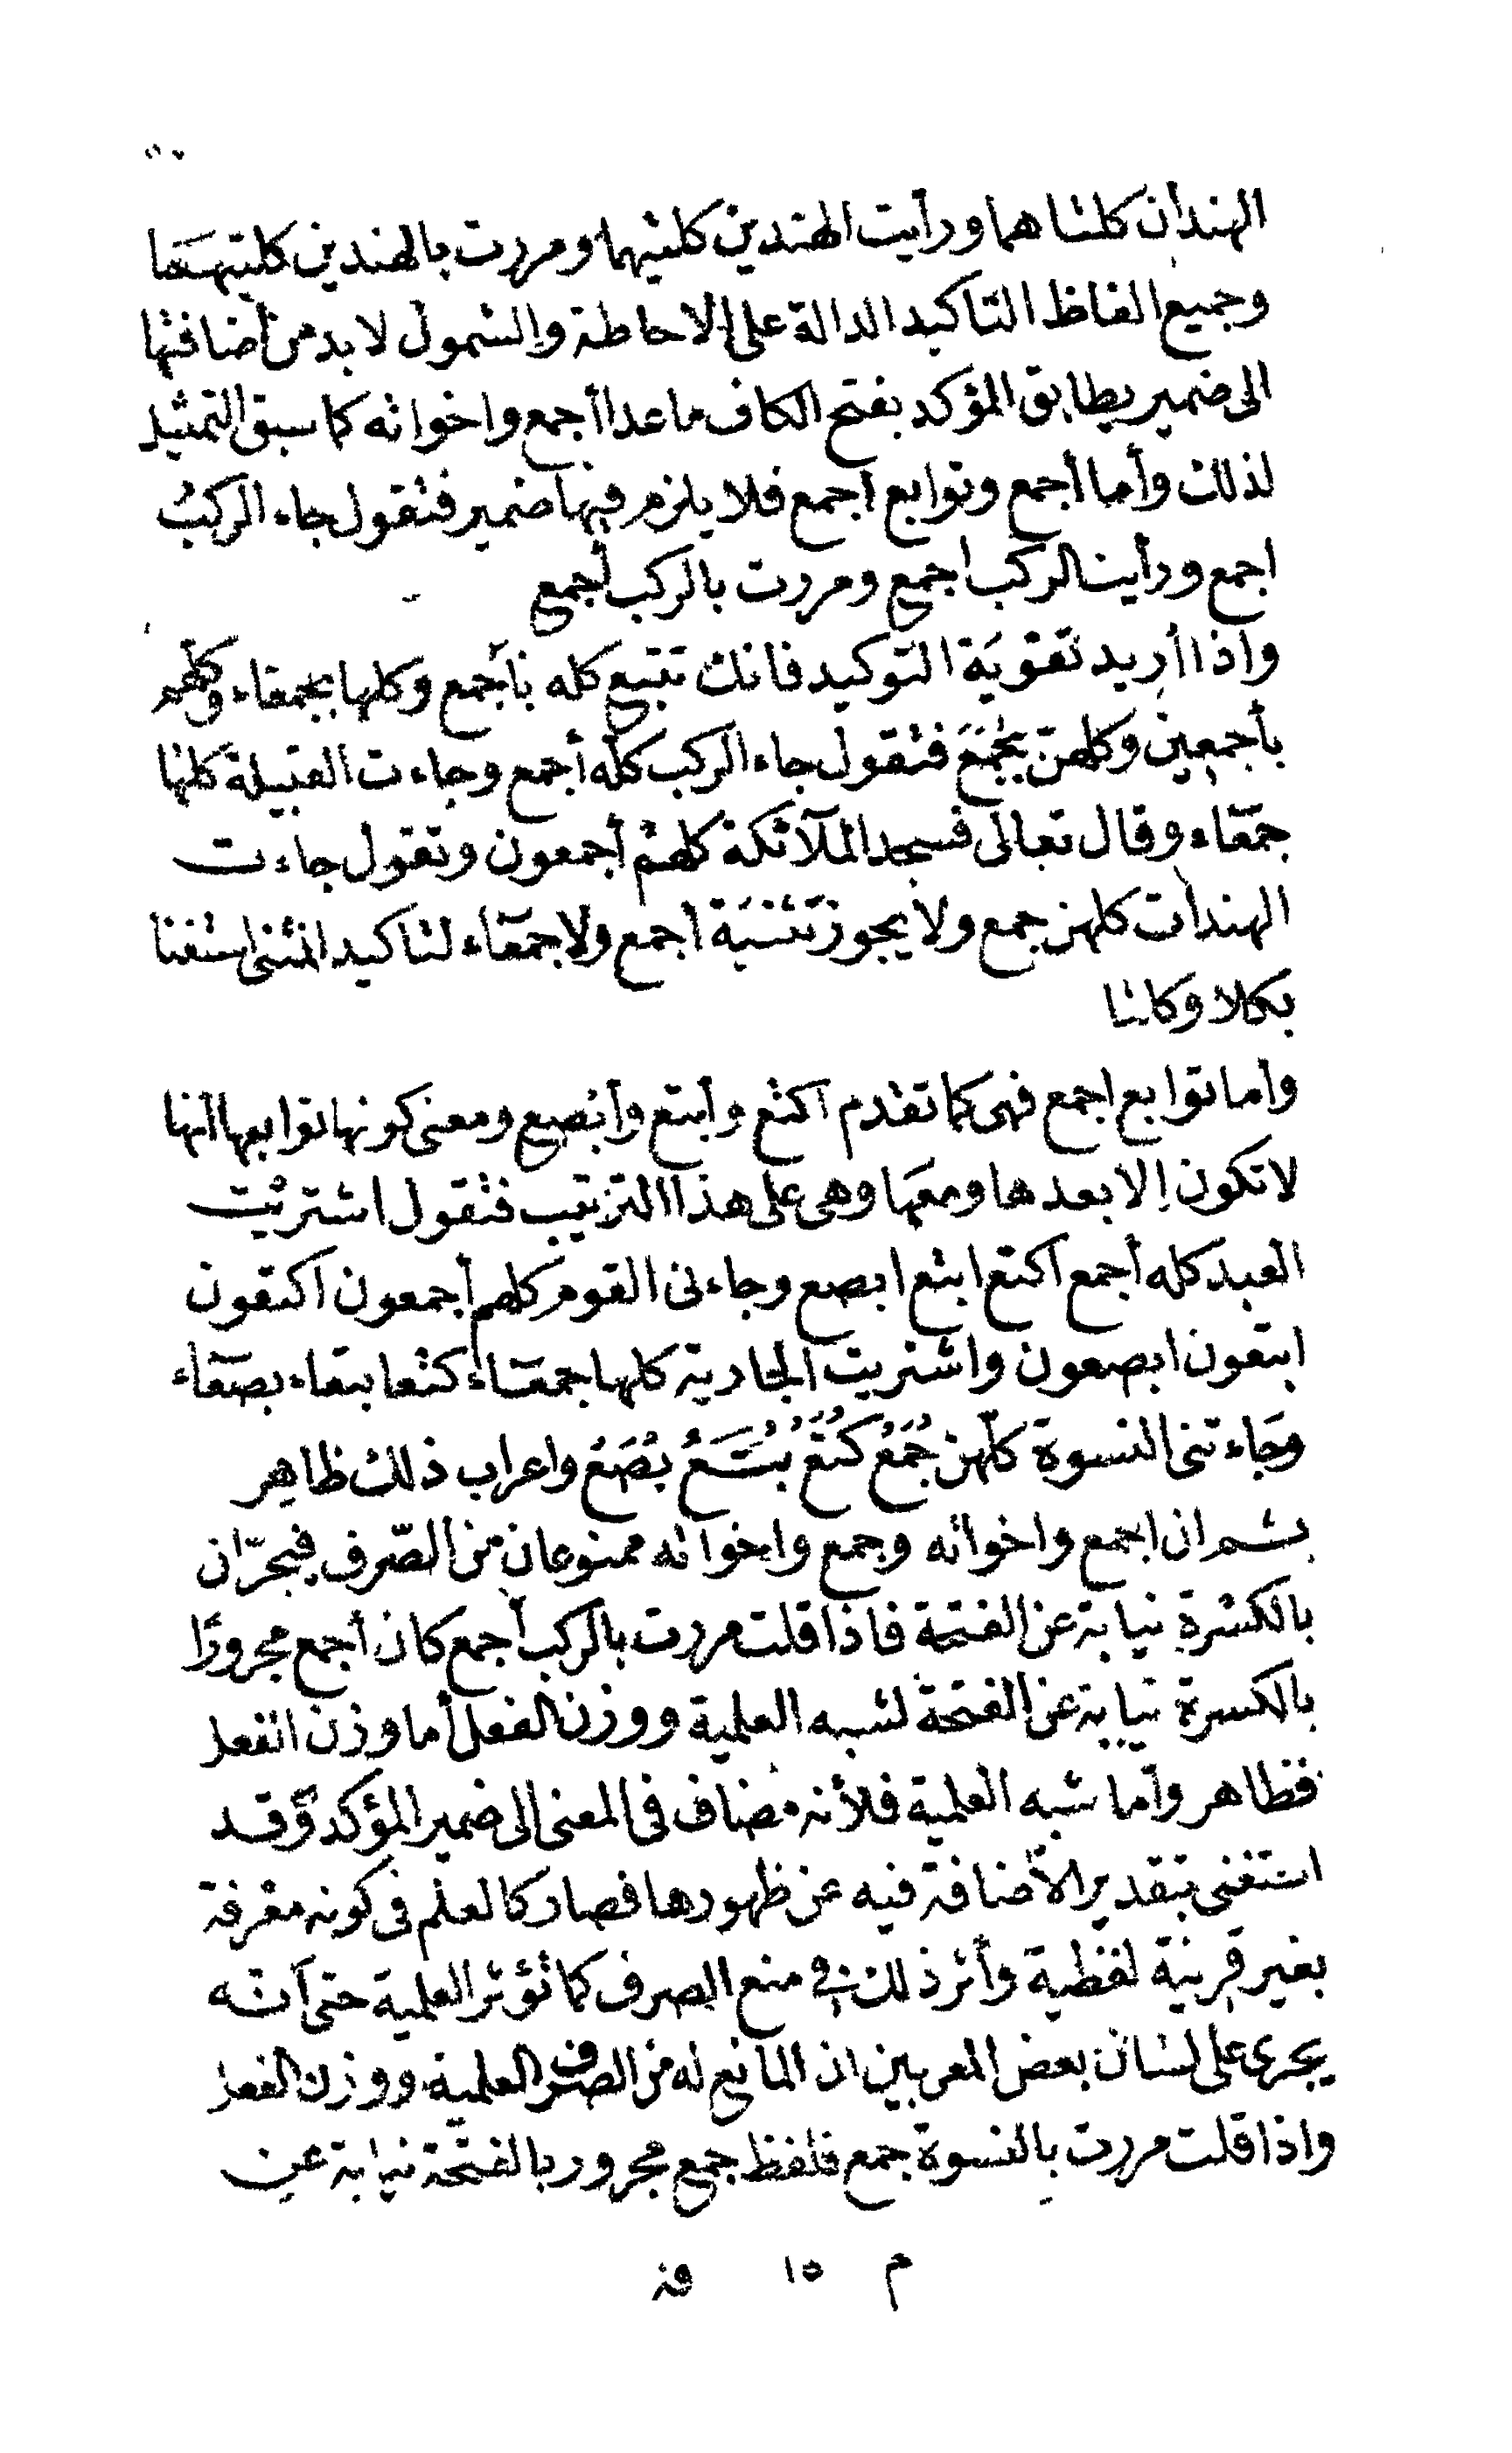 الهندان كلتاهما ورأيت الهندين كلتيهما ومررت بالهندين كلتيهما
وجميع الفاظ التاكيد الدالة على الاحاطة والشمول لا بد من أضافتها
الى ضمير يطابق المؤكد بفتح الكاف ما عدا أجمع واخواته كما سبق التمثيل
لذلك وأما أجمع وتوابع أجمع فلا يلزم فيها ضمير فتقول جاء الركب
اجمع ورأينا الركب اجمع ومررت بالركب أجمع
واذا أريد تقوية التوكيد فانك تتبع كله بأجمع وكلها بجمعاء وكلهم
بأجمعين وكلهن بجُمَعَ فتقول جاء الركب كله أجمع وجاءت القبيلة كلها
جمعاء وقال تعالى فسجد الملآئكة كلهم أجمعون وتقول جاءت
الهندات كلهن جمع ولا يجوز تثنية اجمع ولا جمعاء لتاكيد المثنى استغنا
بكلا وكلتا
وأما توابع اجمع فهى كما تقدم أكتع وأبتع وأبصع ومعنى كونها توابعها أنها
لا تكون إلا بعدها ومعها وهى على هذا الترتيب فتقول اشتريت
العبد كله أجمع اكتع ابتع ابصع وجاءنى القوم كلهم أجمعون اكتعون
ابتعون ابصعون واشتريت الجارية كلها جمعاء كتعا بتعاء بصعاء
وجاءتنى النسوة كلّهن جُمَعُ كُتَعُ بُتَعُ بُصَعُ واعراب ذلك ظاهر
ثم ان اجمع واخواته وجمع واخواته ممنوعان من الصّرف فيجرّان
بالكسرة نيابة عن الفتحة فاذا قلت مررت بالركب أجمع كان أجمع مجرورًا
بالكسرة نيابة عن الفتحة لشبه العلمية ووزن الفعل أما وزن الفعل
فظاهر وأما شبه العلمية فلأنه مضاف فى المعنى الى ضمير المؤكد وقد
استغنى بتقدير الأضافة فيه عن ظهورها فصار كالعلم فى كونه معرفة
بغير قرينة لفظية وأثر ذلك فى منع الصرف كما تؤثر العلمية حتى أنه
يجرى على لسان بعض المعربين ان المانع له من الصرف العلمية ووزن الفعل
واذا قلت مررت بالنسوة جمع فلفظ جمع مجرور بالفتحة نيابة عن
م ١٥ فة